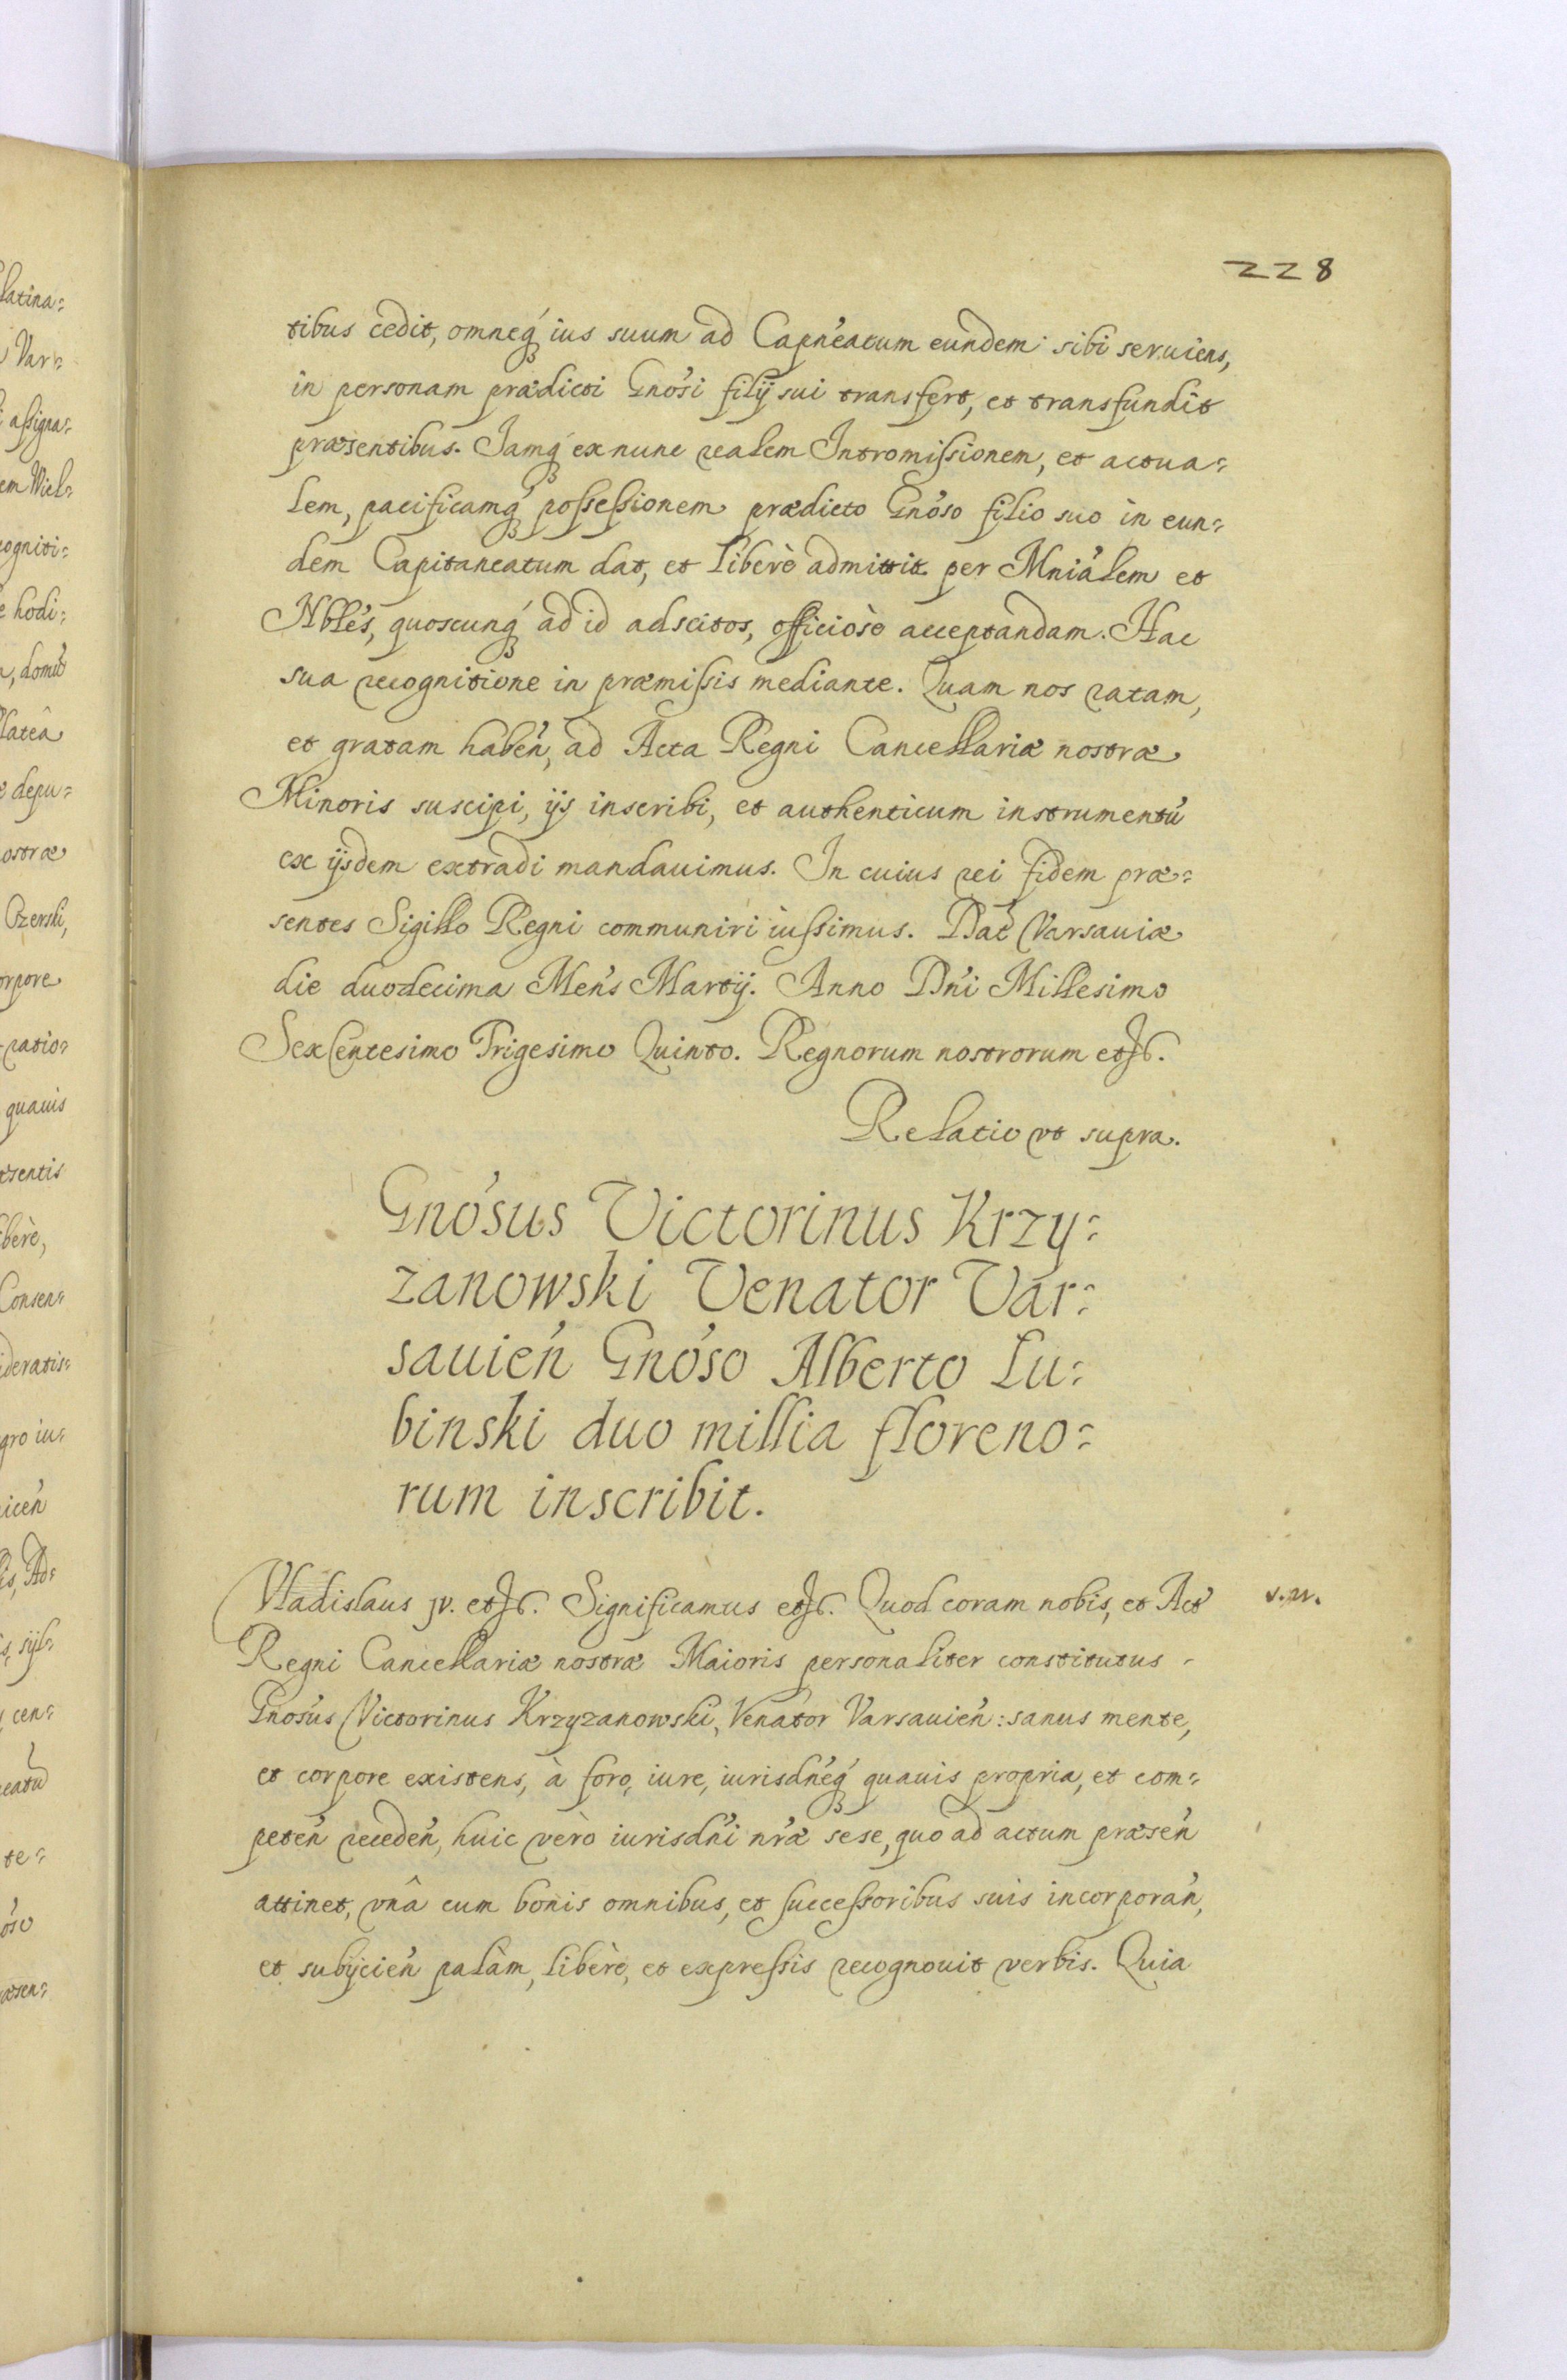 228
tibus cedit, omneq́ ius suum ad Capn̄eatum eundem sibi seruiens,
in personam prædicti Gnosi filij sui transfert, et transfundit
præsentibus. Iamq́ ex nunc realem Intromissionem, et actua=
lem, pacificamq́ possessionem prædicto Gnoso filio suo in eun=
dem Capitaneatum dat, et liberè admittit per Mniálem et
Nblés, quoscunq́ ad id adscitos, officiosè acceptandam. Hac
sua recognitione in præmissis mediante. Quam nos ratam,
et gratam habeń, ad Acta Regni Cancellariæ nostræ
Minoris suscipi, ijs inscribi, et authenticum instrumentú
ex ijsdem extradi mandauimus. In cuius rei fidem præ=
sentes Sigillo Regni communiri iussimus. Dat́ Varsauiæ
die duodecima Meńs Martij. Anno Dńi Millesimo
Sexcentesimo Trigesimo Quinto. Regnorum nostrorum etc.
Relatio vt supra.
Gnósus Victorinus Krzy=
zanowski Venator Var=
sauień Gnóso Alberto Lu=
binski duo millia floreno=
rum inscribit.
Vladislaus jv. etc. Significamus etc. Quod coram nobis, et Act́
Regni Cancellariæ nostræ Maioris personaliter constitutus
Gnosús Victorinus Krzyzanowski, Venator Varsauień: sanus mente,
et corpore existens, à foro, iure, iurisdńeq́ quauis propria, et com=
peteń recedeń, huic vèro iurisdńi nŕæ sese, quo ad actum præseń
attinet, vnâ cum bonis omnibus, et successoribus suis incorporań,
et subijcień palàm, liberè, et expressis recognouit verbis. Quia